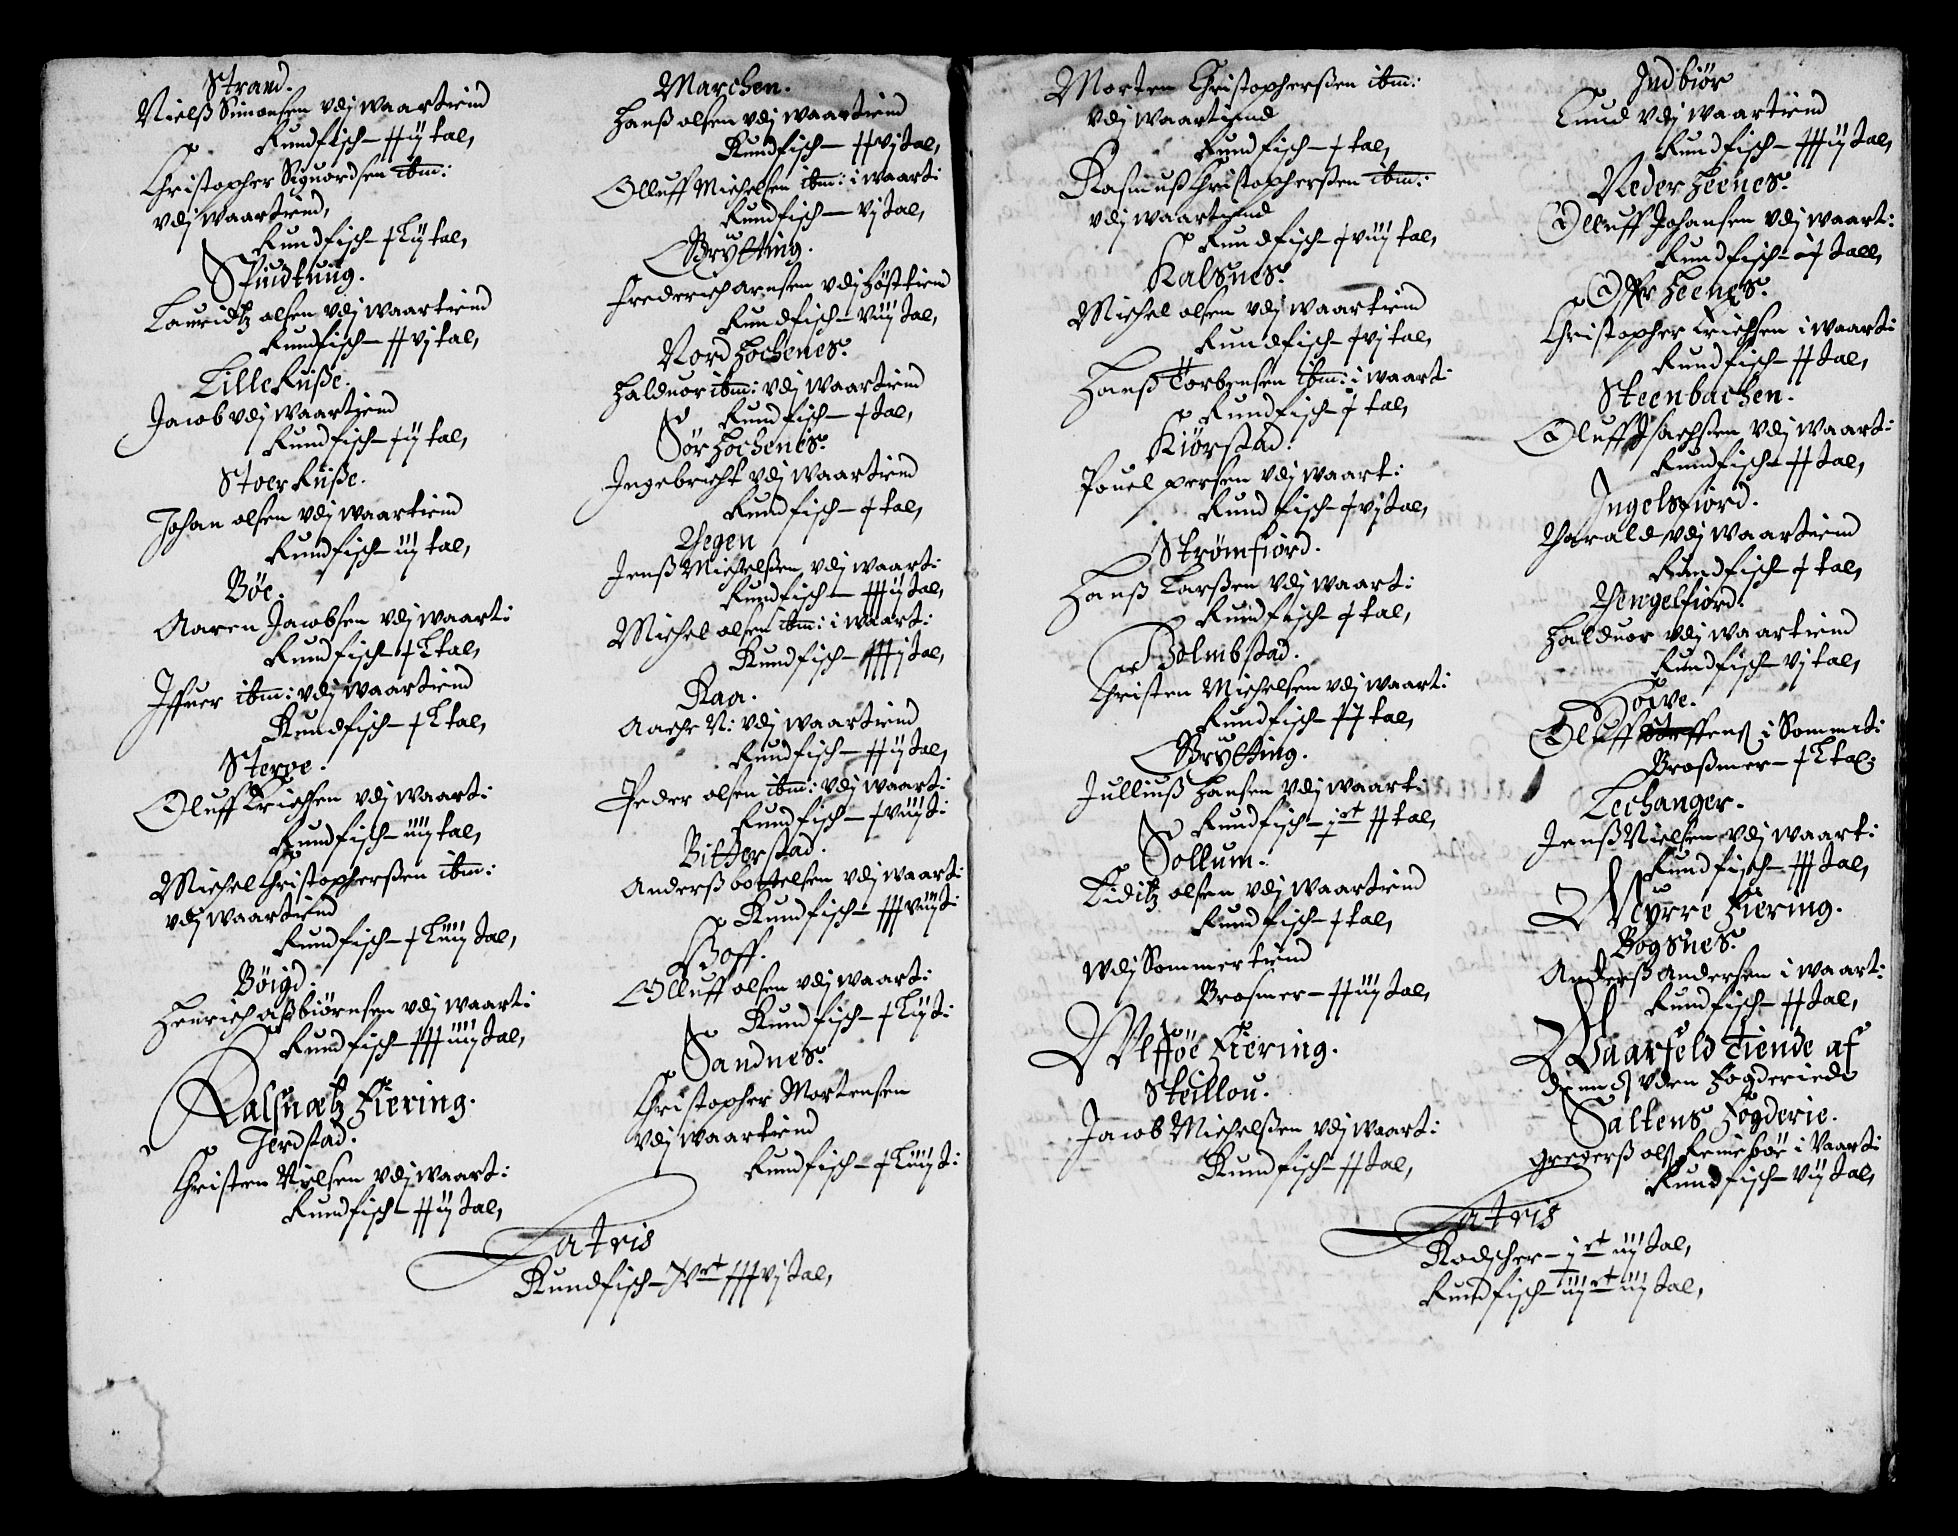 Strand.
Nielß Simonsen vdj waartiend
Rundfisch – ++ ij tal,
Christopher Siguordsen ibm:
vdj waartiend,
Rundfisch – + L ij tal,
Spindtung.
Lauridtz olsen vdj waartiend
Rundfisch – ++ vj tal,
Lille Kuße.
Jacob vdj waartiend
Rundfisch – + ij tal,
Stoer Kuße.
Johan olsen vdj waartiend
Rundfisch – iij tal,
Böe.
Aaren Jacobsen vdj waart:
Rundfisch – + L tal,
Iffuer ibm: vdj waartiend
Rundfisch – + L tal,
Sterpe.
Oluff Erichsen vdj waart:
Rundfisch – iiij tal,
Michel Christopherßen ibm:
vdj waartiend
Rundfisch – + L iiij tal,
Böigd.
Henrich aßbiörnsen vdj waart:
Rundfisch – +++ iiij tal,
Kalsnætz Fiering.
Jerdstad.
Christen Nielsen vdj waart:
Rundfisch – ++ ij tal,
Marchen.
Hanß olsen vdj waartiend
Rundfisch – ++ vj tal,
Olluff Michelsen ibm: i waart:
Rundfisch – vj tal,
Brytting.
Frederich arnsen vdj Hösttiend
Rundfisch – viij tal,
Nord Hochenes.
Halduor ibm: vdj waartiend
Rundfisch – + tal,
Sör Hochenes.
Ingebricht vdj waartiend
Rundfisch – + tal,
Hegen
Jenß Michelßen vdj waart:
Rundfisch – +++ ij tal,
Michel olsen ibm: i waart:
Rundfisch – +++ j tal,
Raa.
Aache N: vdj waartiend
Rundfisch – ++ ij tal,
Peder olsen ibm: vdj waart:
Rundfisch – + viij t:
Bitterstad.
Anderß bottelsen vdj waart:
Rundfisch – +++ viij t:
Hoff.
Olluff olsen vdj waart:
Rundfisch – + L ij t:
Sandnes.
Christopher Mortensen
vdj waartiend
Rundfisch – + L iiij t:
Latris
Rundfisch – xv ct +++ vj tal,
Morten Christopherßen ibm:
vdj waartiend
Rundfisch – + tal,
Rasmuß Christopherßen ibm:
vdj waartiend
Rundfisch – + viij tal,
Kalsnes.
Michel olsen vdj waartiend
Rundfisch – + vj tal,
Hanß Torbensen ibm: i waart:
Rundfisch – + tal,
Kiörstad.
Pouel persen vdj waart:
Rundfisch – + vj tal,
Strömfiörd.
Hanß Larßen vdj waart:
Rundfisch – + tal,
Holmbstad.
Christen Michelsen vdj waart:
Rundfisch – ++ tal,
Brytting.
Julliuß Hansen vdj waart:
Rundfisch – j ct ++ tal,
Sollum.
Diditz olsen vdj waartiend
Rundfisch – + tal,
vdj Sommertiend
Brosmer – ++ iij tal,
Ulföe Fiering.
Steillou.
Jacob Michelßen vdj waart:
Rundfisch – ++ tal,
Indbiör
Lund vdj waartiend
Rundfisch – +++ ij tal,
Neder Heenes.
Olluff Johansen vdj waart:
Rundfisch – + tall,
Offr Heenes.
Christopher Erichsen i waart:
Rundfisch – ++ tal,
Steenbachen.
Oluff Isachsen vdj waart:
Rundfisch – ++ tal,
Ingelsfiord.
Harald vdj waartiend
Rundfisch – + tal,
Hengelfiord.
Halduor vdj waartiend
Rundfisch – vj tal,
Howe.
Oluff Steffens i Sommert:
Broßmer – + L tal:
Lechanger.
Jenß Nielsen vdj waart:
Rundfisch – +++ tal,
Myrre Fiering.
Bogsnes.
Anderß Andersen i waart:
Rundfisch – ++ tal,
Waarfeld Tiende af
vden Fogderiede
Saltens Fogderie.
Greyerß ols Reinesböe i Vaart:
Rundfisch – vij tal,
Latris
Rodscher – j ct iij tal,
Rundfisch – iiij ct iij tal,